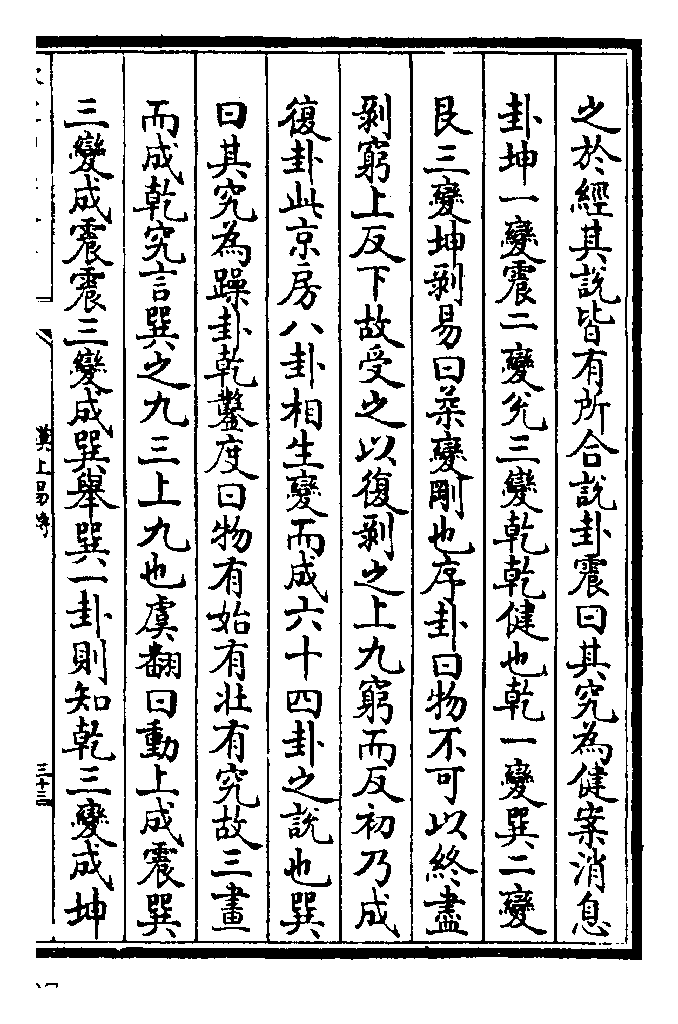 之於經其說皆有所合說卦震曰其究為健案消息
卦坤一變震二變兊三變乾乾健也乾一變巽二變
艮三變坤剥易曰柔變剛也序卦曰物不可以終盡
剥窮上反下故受之以復剥之上九窮而反初乃成
復卦此京房八卦相生變而成六十四卦之說也巽
曰其究為躁卦乾鑿度曰物有始有壯有究故三畫
而成乾究言巽之九三上九也虞翻曰動上成震巽
三變成震震三變成巽舉巽一卦則知乾三變成坤
漢上易傳
三十三